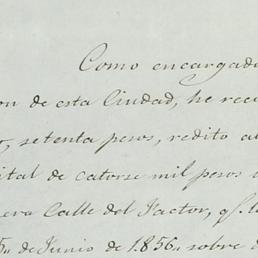 Como encargado
on de esta Ciudad, he rec
setenta pesos, redito al
ital de catorse mil pesos
era Calle del Factor, q.
de Junio de 1856, sobre